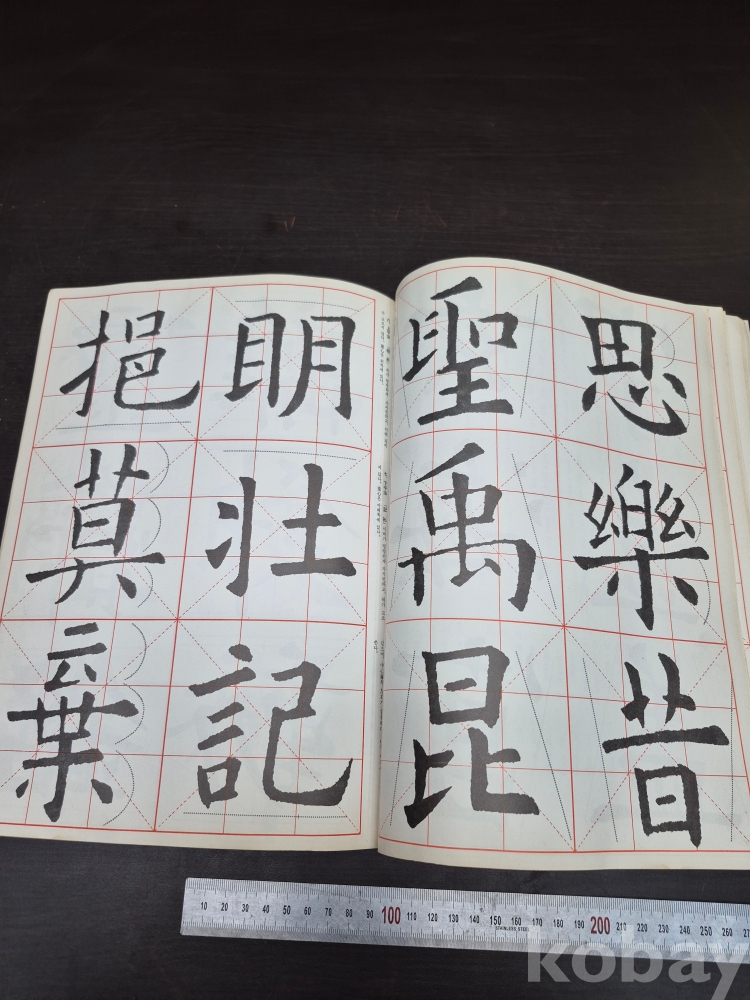 思樂昔
聖禹昆
眀壮記
挹莫棄
10 20 30 40 50 60 70 80 90 100 110 120 130 140 150 160 170 180 190 200 210 220 230 240 250 260
STAINLESS STEEL
kobay